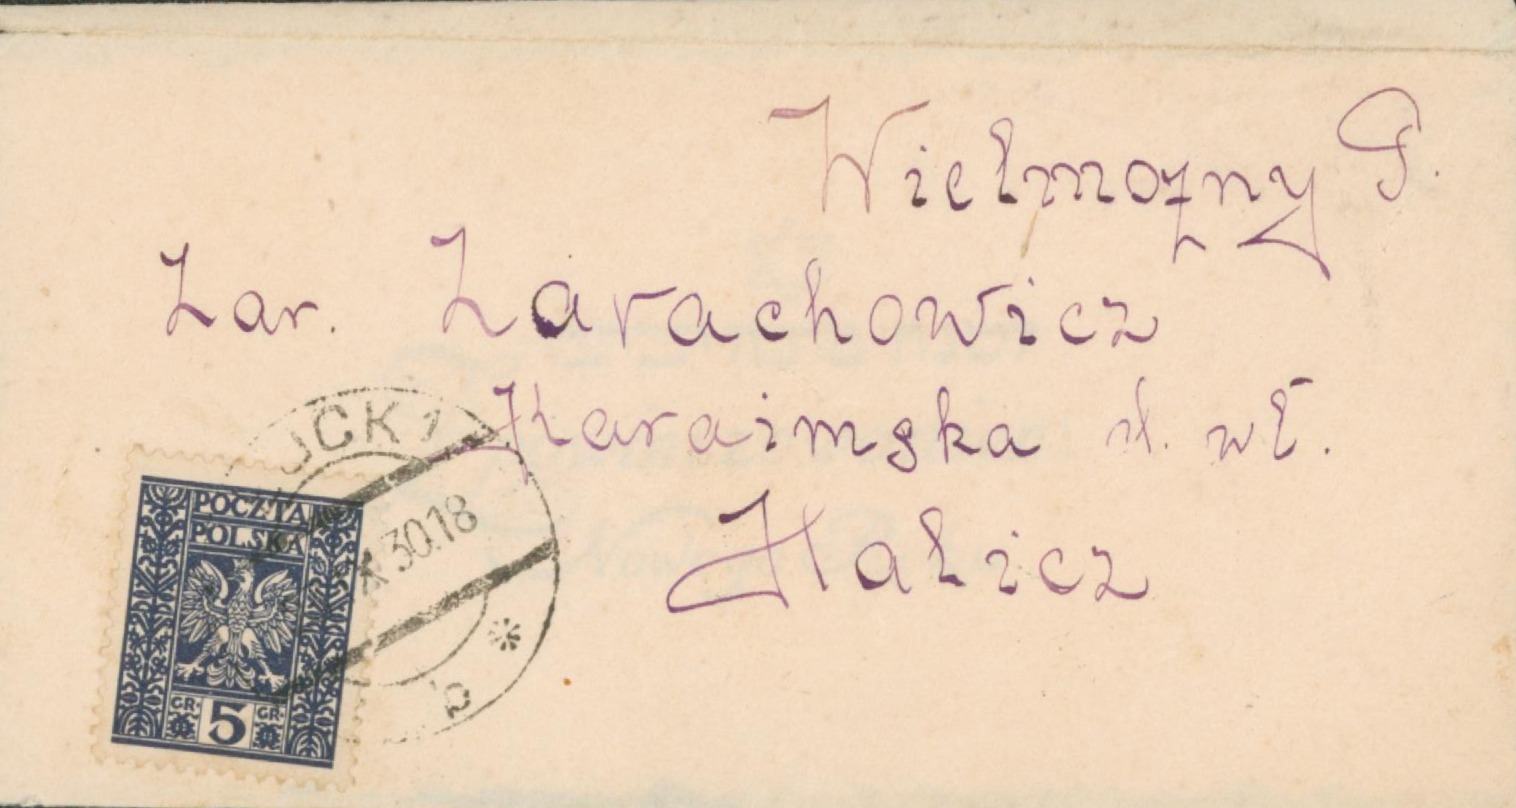 Wielmożny P.
Zar. Zarachowicz
Karaimska d. wł.
Halicz
ŁUCK 1
X 30.18
b *
POCZTA
POLSKA
GR. 5 GR.